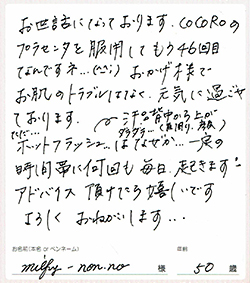 お世話になっております。COCOROの
プラセンタを服用してもう46回目
なんですネ…(^-^;) おかげ様で
お肌のトラブルはなく、元気に過ごせ
ております。
ただ…
汗が背中から上が
ダラダラ…(真夏り、
ホットフラッシュ…はなぜか…一定の
時間帯に何回も毎日、起きます。
アドバイス頂けたら嬉しいです
よろしくおねがいします…
お名前(本名 or ペンネーム)
年齢
milfy-non.no 様 50 歳